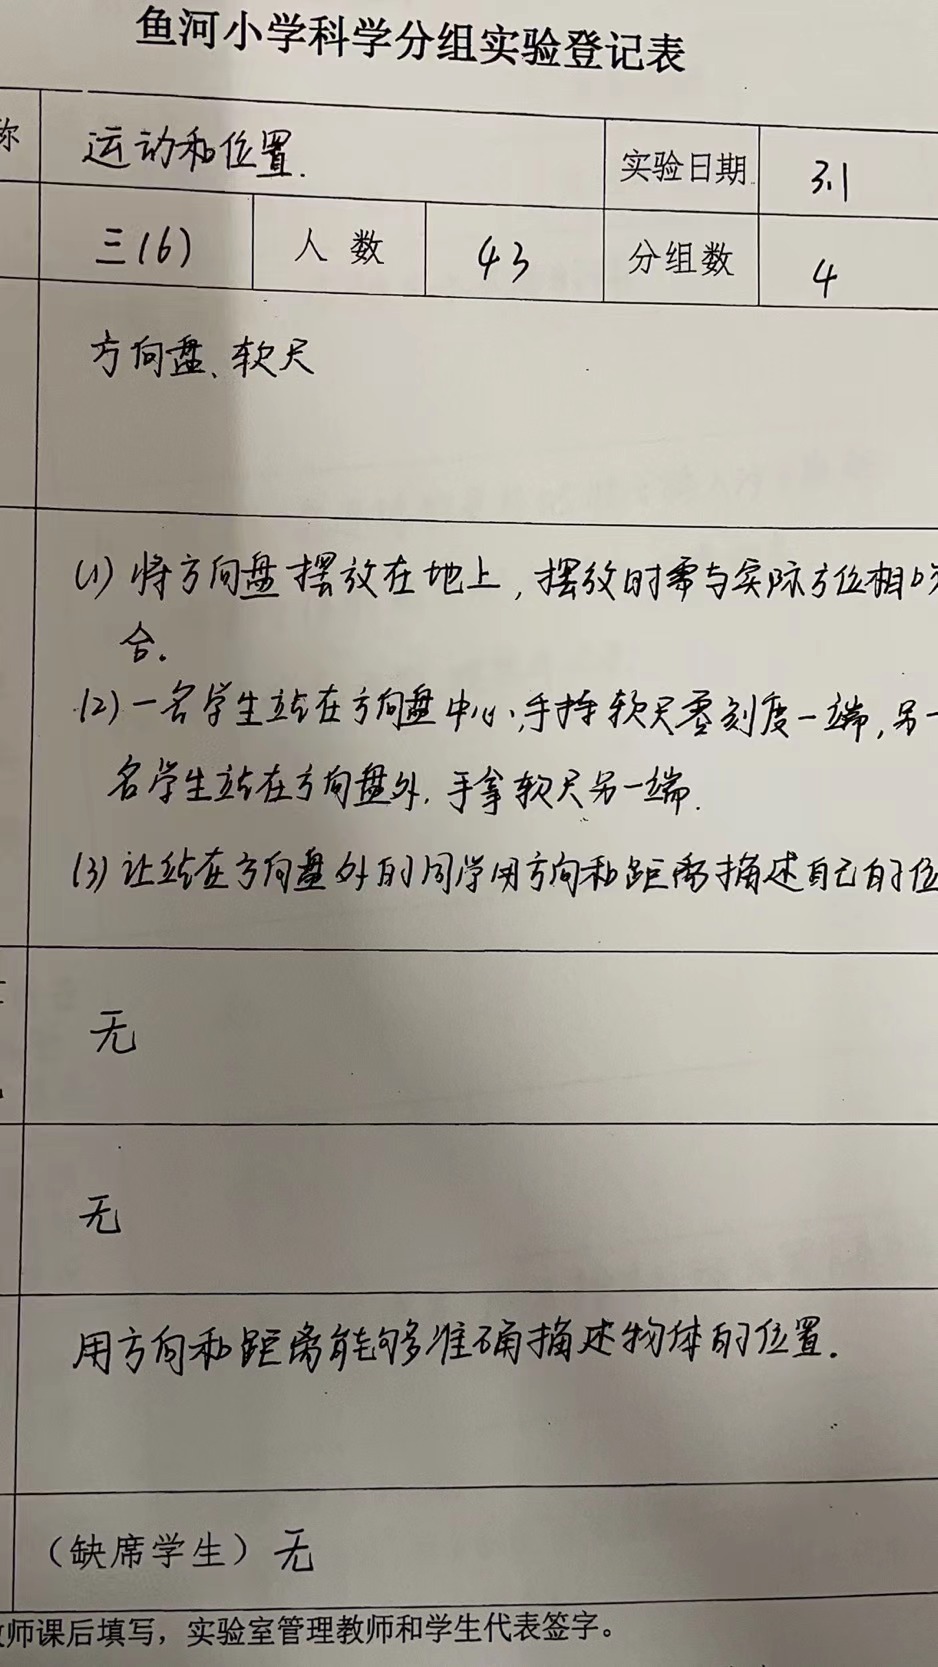 鱼河小学科学分组实验登记表
称 运动和位置. 实验日期 3.1
三(6) 人数 43 分组数 4
方向盘、软尺
(1) 将方向盘摆放在地上,摆放时需与实际方位相吻
合.
(2) 一名学生站在方向盘中心,手持软尺零刻度一端,另一
名学生站在方向盘外,手拿软尺另一端.
(3) 让站在方向盘外的同学用方向和距离描述自己的位
无
无
用方向和距离能够准确描述物体的位置.
(缺席学生) 无
师课后填写,实验室管理教师和学生代表签字。